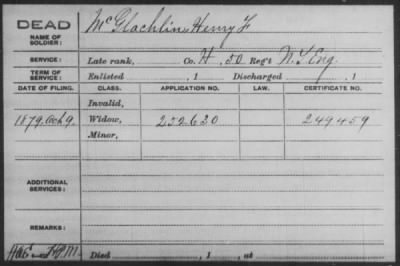 DEAD
NAME OF SOLDIER: McGlachlin, Henry F
SERVICE: Late rank, Co. H, 50 Reg't N.Y. Eng.
TERM OF SERVICE: Enlisted , 1 Discharged , 1
DATE OF FILING. CLASS. APPLICATION NO. LAW. CERTIFICATE NO.
Invalid,
1879, Oct 9. Widow, 252630 249459
Minor,
ADDITIONAL SERVICES:
REMARKS:
Died , 1 , at